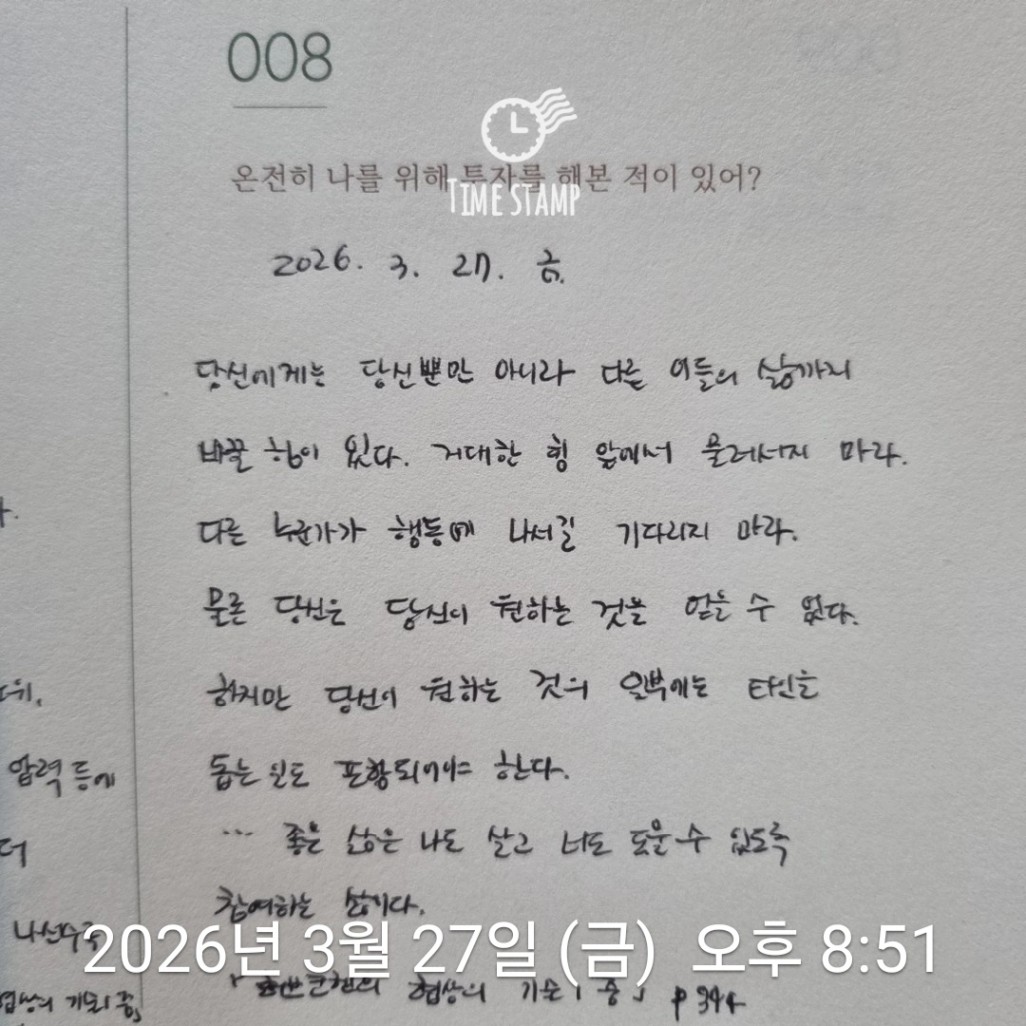 008
온전히 나를 위해 투자를 해본 적이 있어?
TIME STAMP
2026. 3. 27. 금.
당신에게는 당신뿐만 아니라 다른 이들의 삶까지
바꿀 힘이 있다. 거대한 힘 앞에서 물러서지 마라.
다른 누군가가 행동에 나서길 기다리지 마라.
물론 당신은 당신이 원하는 것을 얻을 수 있다.
하지만 당신이 원하는 것의 일부에는 타인을
돕는 일도 포함되어야 한다.
… 좋은 삶은 나도 살고 너도 도울 수 있도록
참여하는 삶이다.
협상의 기술1 중」 p344
압력 등에
더
협상의 기술1 중」
2026년 3월 27일 (금) 오후 8:51